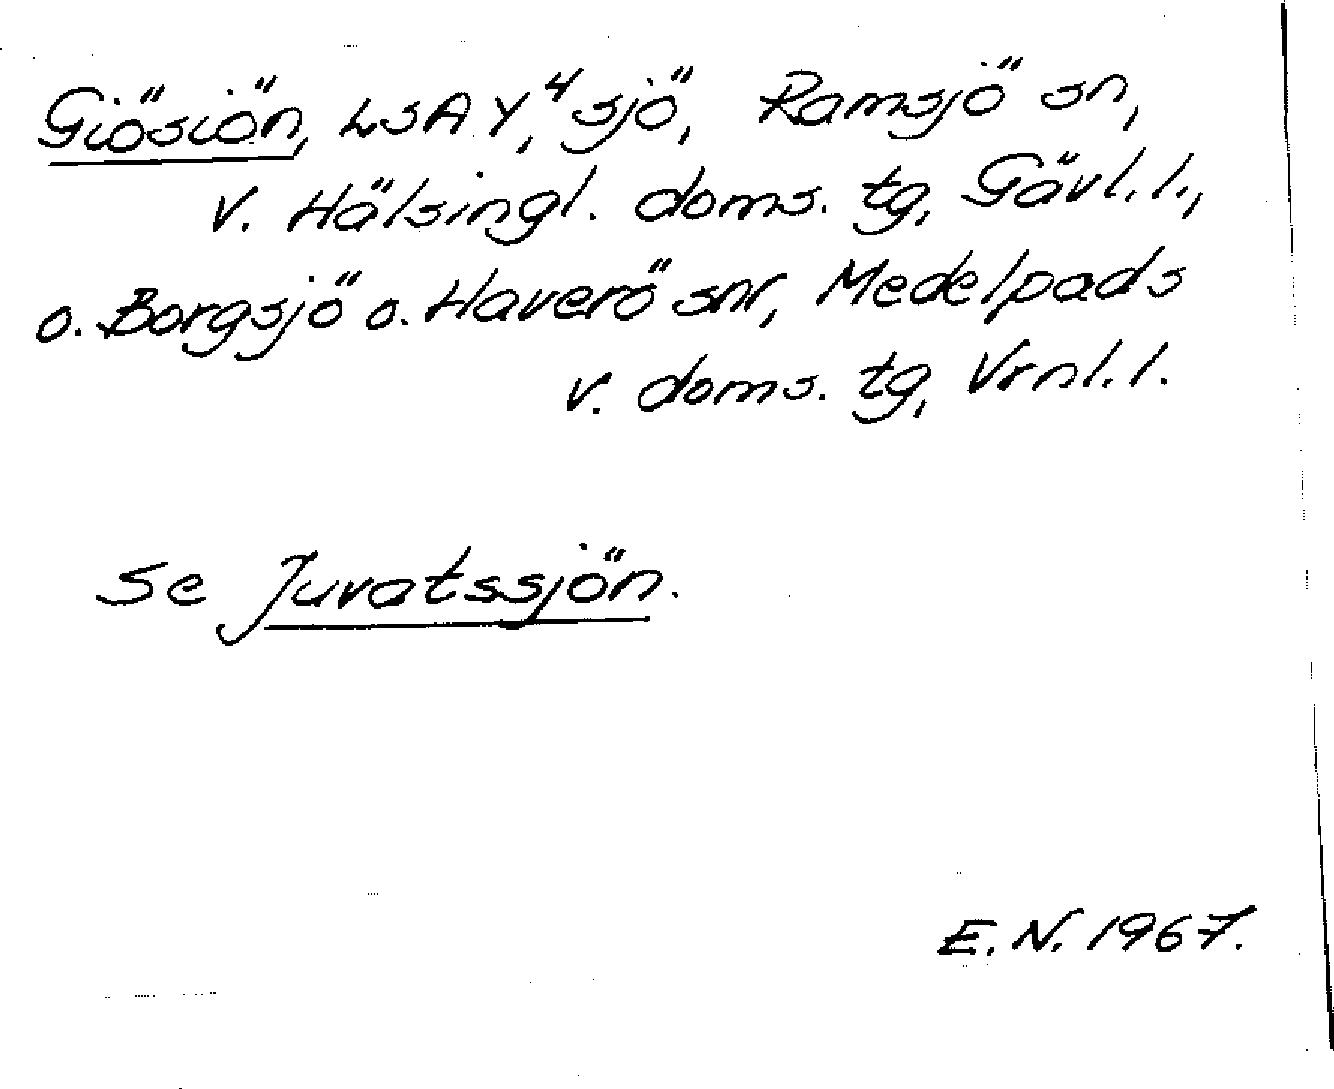 Giösiön, LSA Y,⁴ sjö, Ramsjö sn,
v. Hälsingl. doms. tg, Gävl. l.,
o. Borgsjö o. Haverö snr, Medelpads
v. doms. tg, Vrnl. l.
Se Juvatssjön.
E. N. 1967.